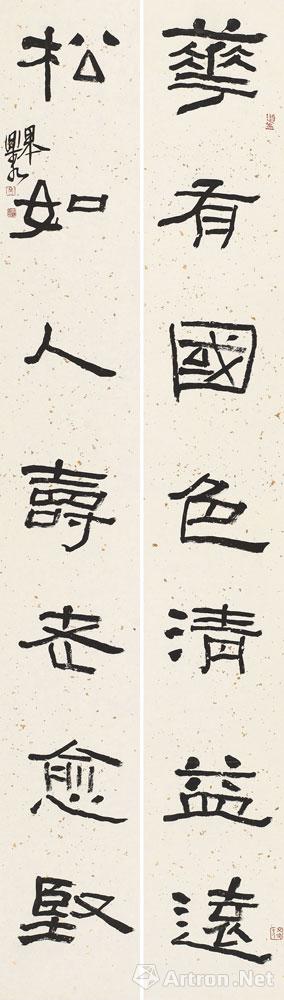 華有國色清益遠
松如人壽老愈堅
Artron.Net